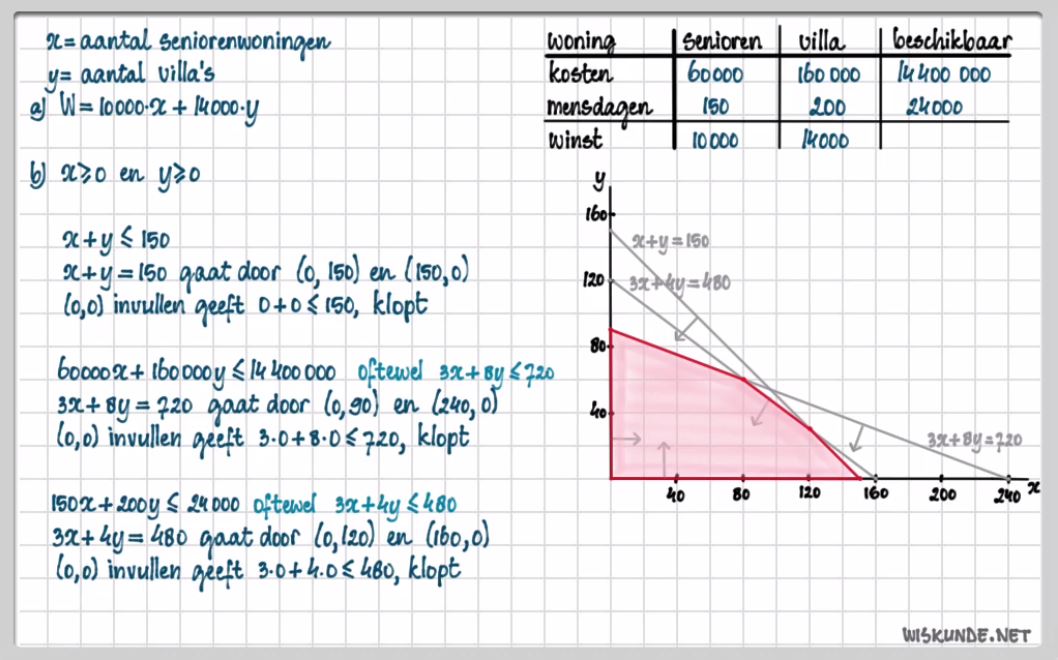 x = aantal seniorenwoningen
y = aantal villa's
a) W = 10000·x + 14000·y
b) x ⩾ 0 en y ⩾ 0
x + y ⩽ 150
x + y = 150 gaat door (0, 150) en (150,0)
(0,0) invullen geeft 0 + 0 ⩽ 150, klopt
60000x + 160000y ⩽ 14 400 000 oftewel 3x + 8y ⩽ 720
3x + 8y = 720 gaat door (0,90) en (240,0)
(0,0) invullen geeft 3·0 + 8·0 ⩽ 720, klopt
150x + 200y ⩽ 24 000 oftewel 3x + 4y ⩽ 480
3x + 4y = 480 gaat door (0,120) en (160,0)
(0,0) invullen geeft 3·0 + 4·0 ⩽ 480, klopt
woning senioren villa beschikbaar
kosten 60000 160 000 14 400 000
mensdagen 150 200 24000
winst 10000 14000
y
160
x + y = 150
120
3x + 4y = 480
80
40
3x + 8y = 720
40 80 120 160 200 240 x
WISKUNDE.NET